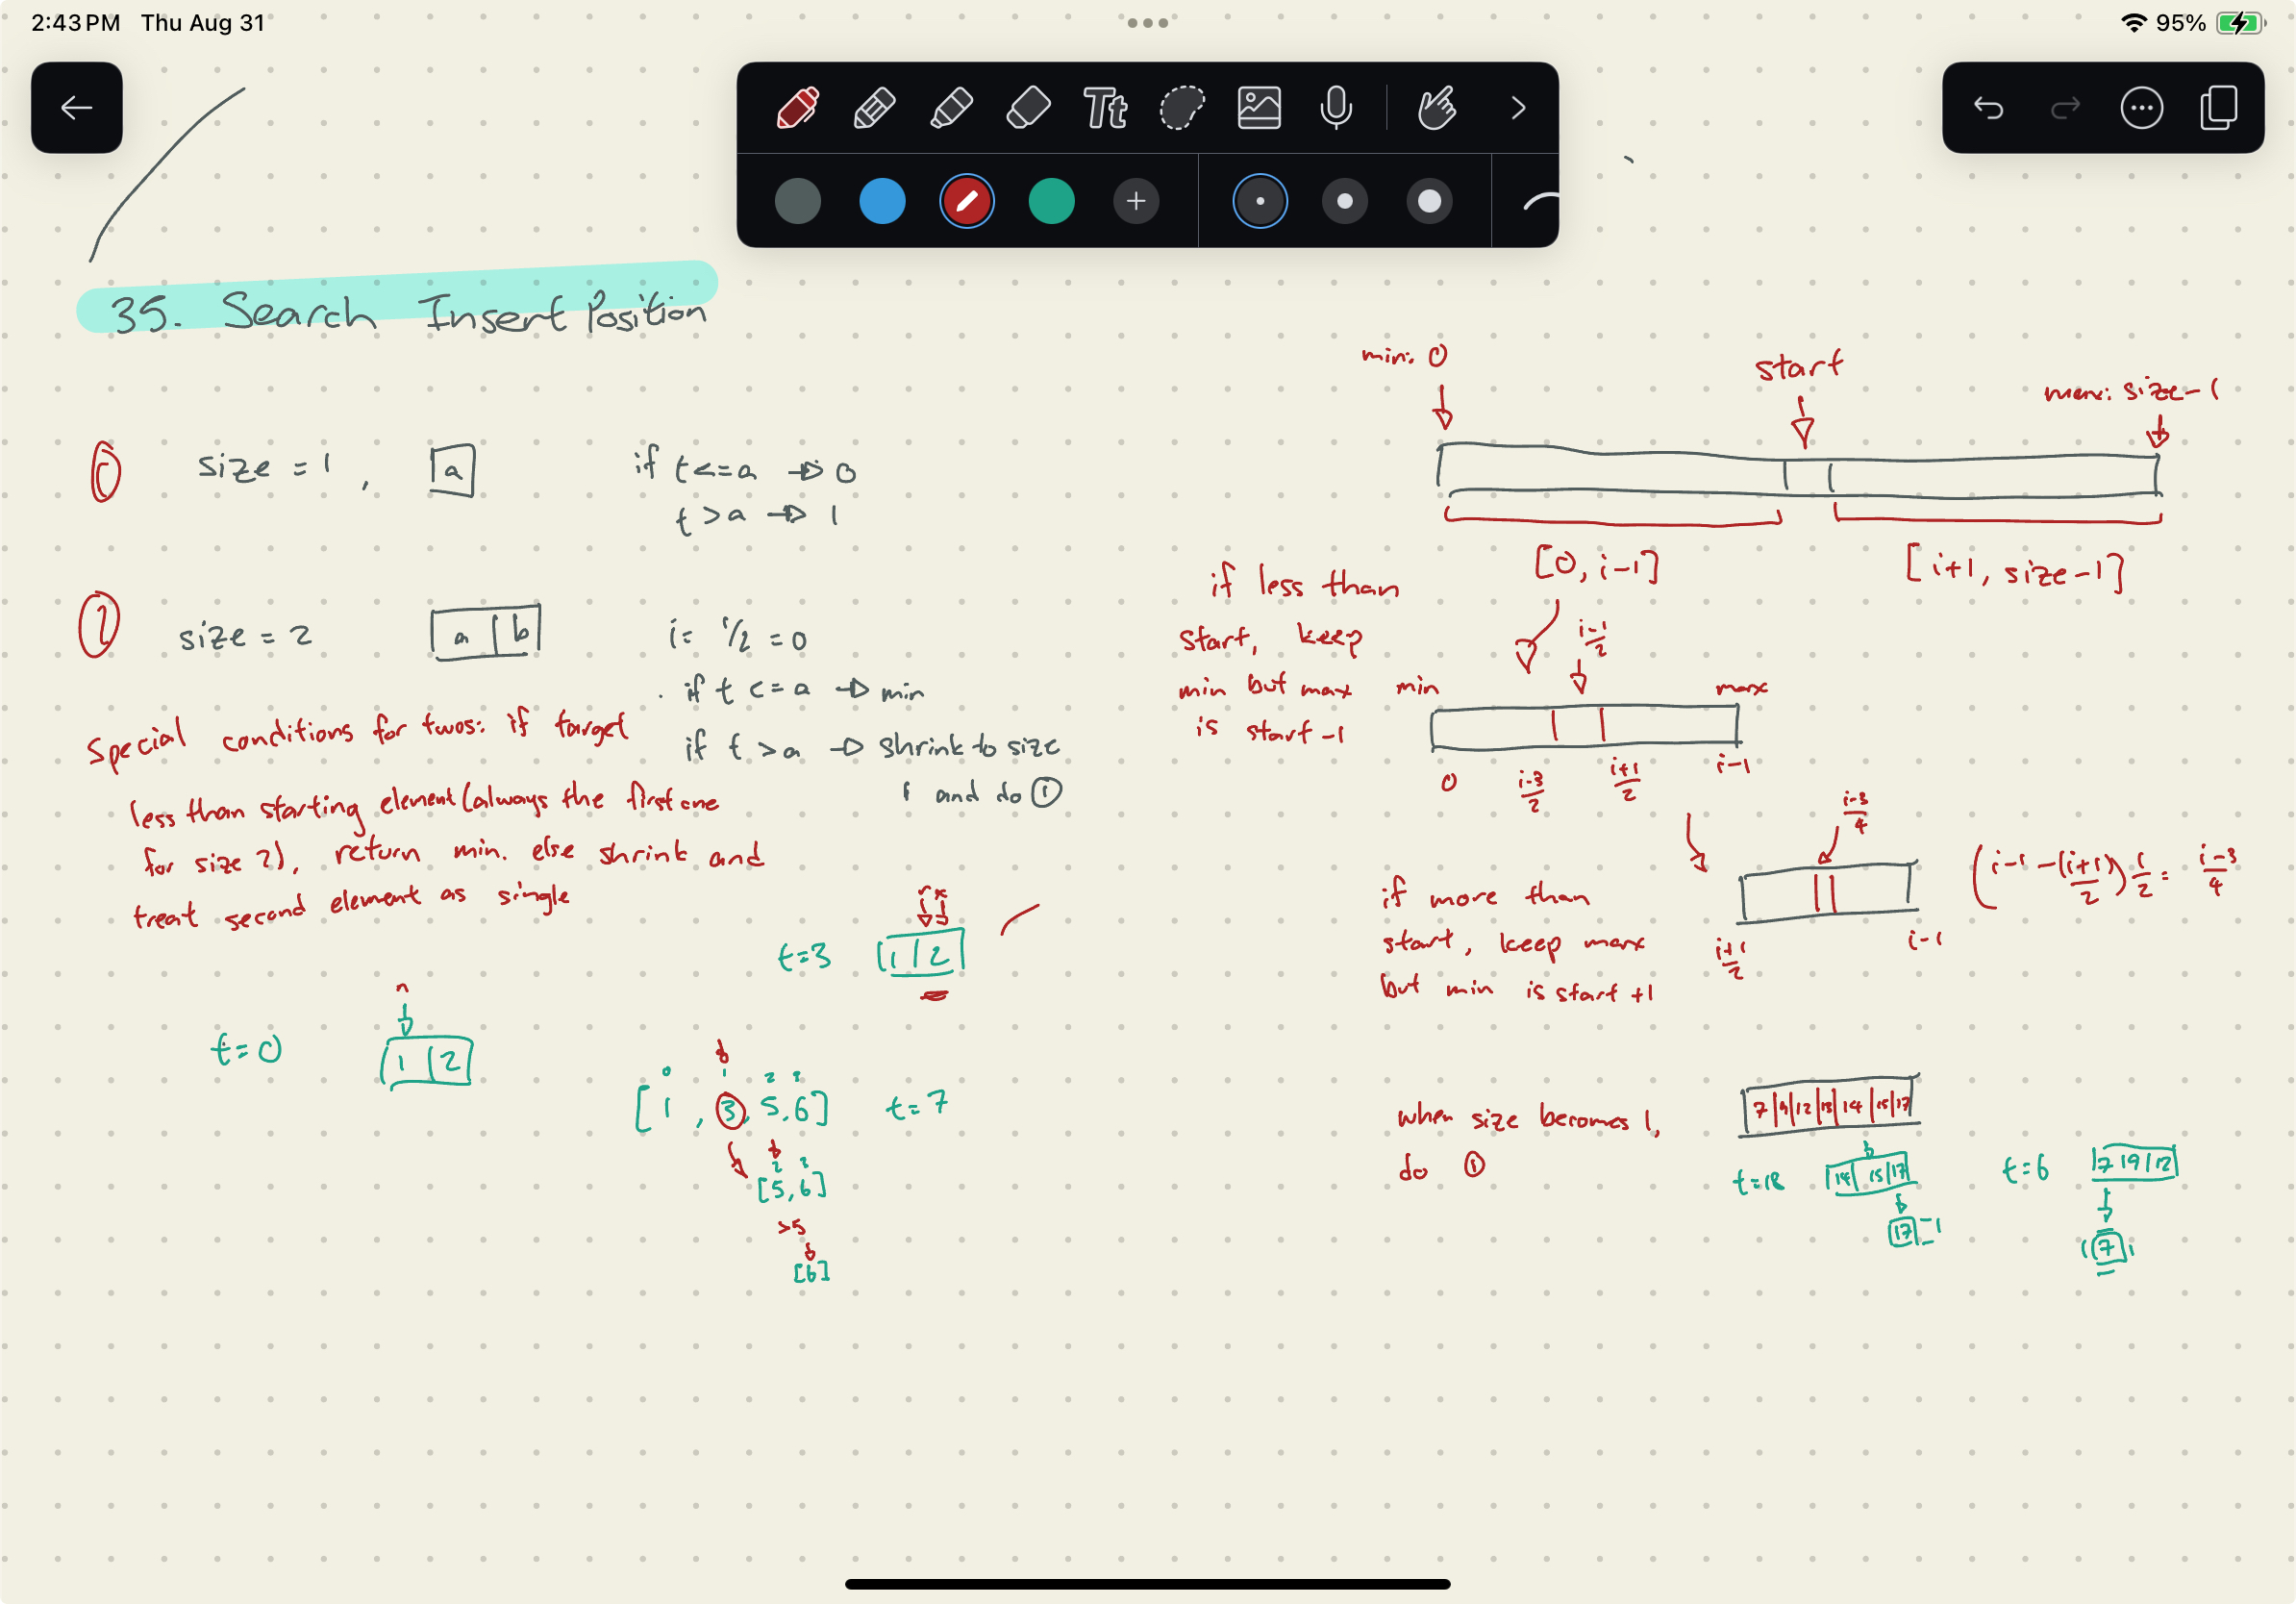 2:43 PM Thu Aug 31
95%
Tt
35. Search Insert Position
size = 1 , a
if t <= a → 0
t > a → 1
size = 2 a b
i = 1/2 = 0
if t <= a → min
if t > a → shrink to size
1 and do ①
Special conditions for twos: if target
less than starting element (always the first one
for size 2), return min. else shrink and
treat second element as single
t=3 1 2
t=0 1 2
0 1 2 3
[1, 3, 5, 6] t=7
2 3
[5, 6]
>5
[6]
min: 0
start
max: size-1
[0, i-1] [i+1, size-1]
if less than
start, keep
min but max
is start-1
i-1/2
min max
0 i-3/2 i+1/2 i-1
if more than
start, keep max
but min is start +1
i-3/4
i+1/2 i-1
(i-1 - (i+1)/2) 1/2 = i-3/4
when size becomes 1,
do ①
7 9 12 13 14 15 17
t=18 14 15 17
17
t=6 7 9 12
7